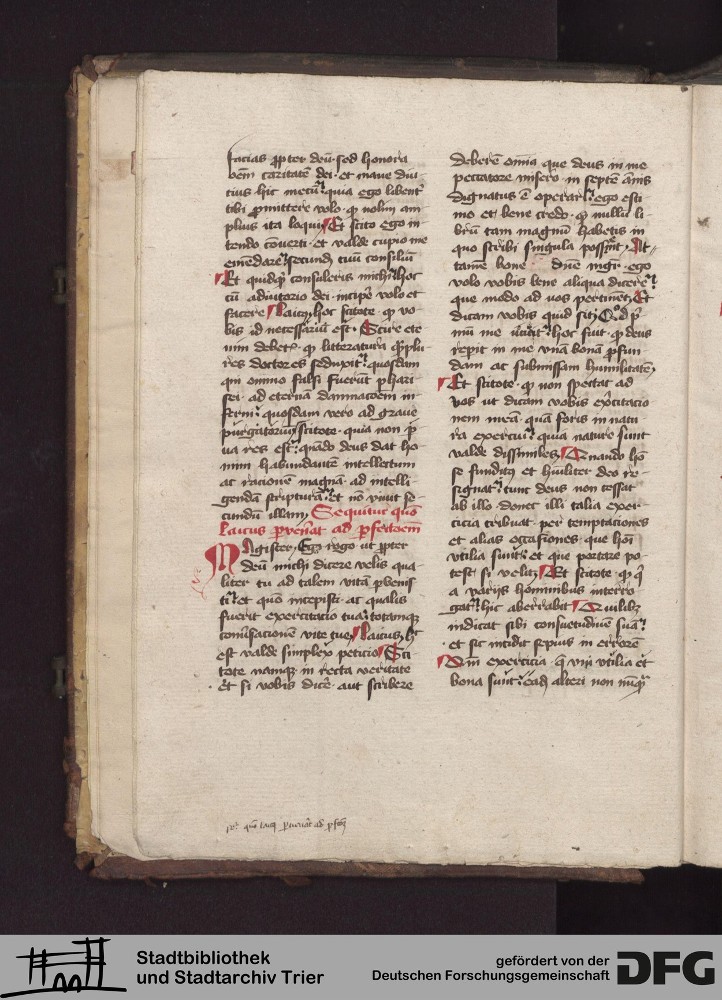 facias ꝓpter deū sed honora
veritatē caritatē dei et maneDiu
tius hic mecū quia ego libent̾
tibi ꝓmittere volo ꝙ nolim am
plius ita loqui Et scito ego in
tendo cōuerti et valde cupio me
emēdare secundū tuū consiliū
Et quidqͥd consuleris michi hoc
cū adiutorio dei incipe volo et
facere Laicꝰ hoc scitote ꝙ vo
bis id necessariū est Scire ete
nim debetis ꝙ litteratura qͣmplu
res doctores seduxit quosdam
qui omnino falsi fuerūt phari
sei ad eternā damnacōem in
ferni quosdam vero ad graue
purgatoriū scitote quia non p̄
ua res est quādo deus dat ho
mini habundantē intellectum
ac racionem magnā ad intelli
gendā scripturā et nō viuit se
cundū illam Sequitur quō
laicus ꝑvenit ad ꝑfectōem
Magister Ego rogo ut ꝓpter
deū michi dicere velis qua
liter tu ad talem vitā ꝑvenis
ti et quō incepisti ac qualis
fuerit exercitacio tua totamqꝫ
conūsacionem vite tue Laicus hͨ
est valde simplex peticio Sci
tote namqꝫ in recta veritate
Et si vobis dicē aut scribere
deberē omnia que deus in me
peccatore misero in septē ānis
dignatus ē operari ego esti
mo et bene credo ꝙ nullū li
brū tam magnū habetis in
quo scribi singula possint At
tamē bone dn̄e mgr̄ ego
volo vobis bene aliqua dicere
que modo ad vos pertinēt Et
dicam vobis quid sit Qd̾ pͥ
mū me iuuit hoc fuit ꝙ deus
repit in me vnā bonā ꝓfun
dam ac submissam humilitatē
Et scitote ꝙ non spectat ad
vos ut dicam vobis exͨitacio
nem meā quā foris in natu
ra exercui quia nature sunt
valde dissimiles Quando hō
se funditꝰ et hūiliter deo re
signat tunc deus non cessat
ab illo donec illi talia exer
cicia tribuat per temptaciones
et alias occasiones que hoī
vtilia sunt et que portare po
test si velit Et scitote ꝙ qͥ
a varijs hominibus interro
gat hic aberrabit Quilibꝫ
iudicat sibi consuetudinē suā
et sic incidit sepius in errorē
Nā exercicia q̄ vni vtilia et
bona sunt eadē alteri non nūqͣ
quō laicꝰ ꝑuenit ad ꝑfcōꝫ
Stadtbibliothek
und Stadtarchiv Trier
gefördert von der
Deutschen Forschungsgemeinschaft
DFG